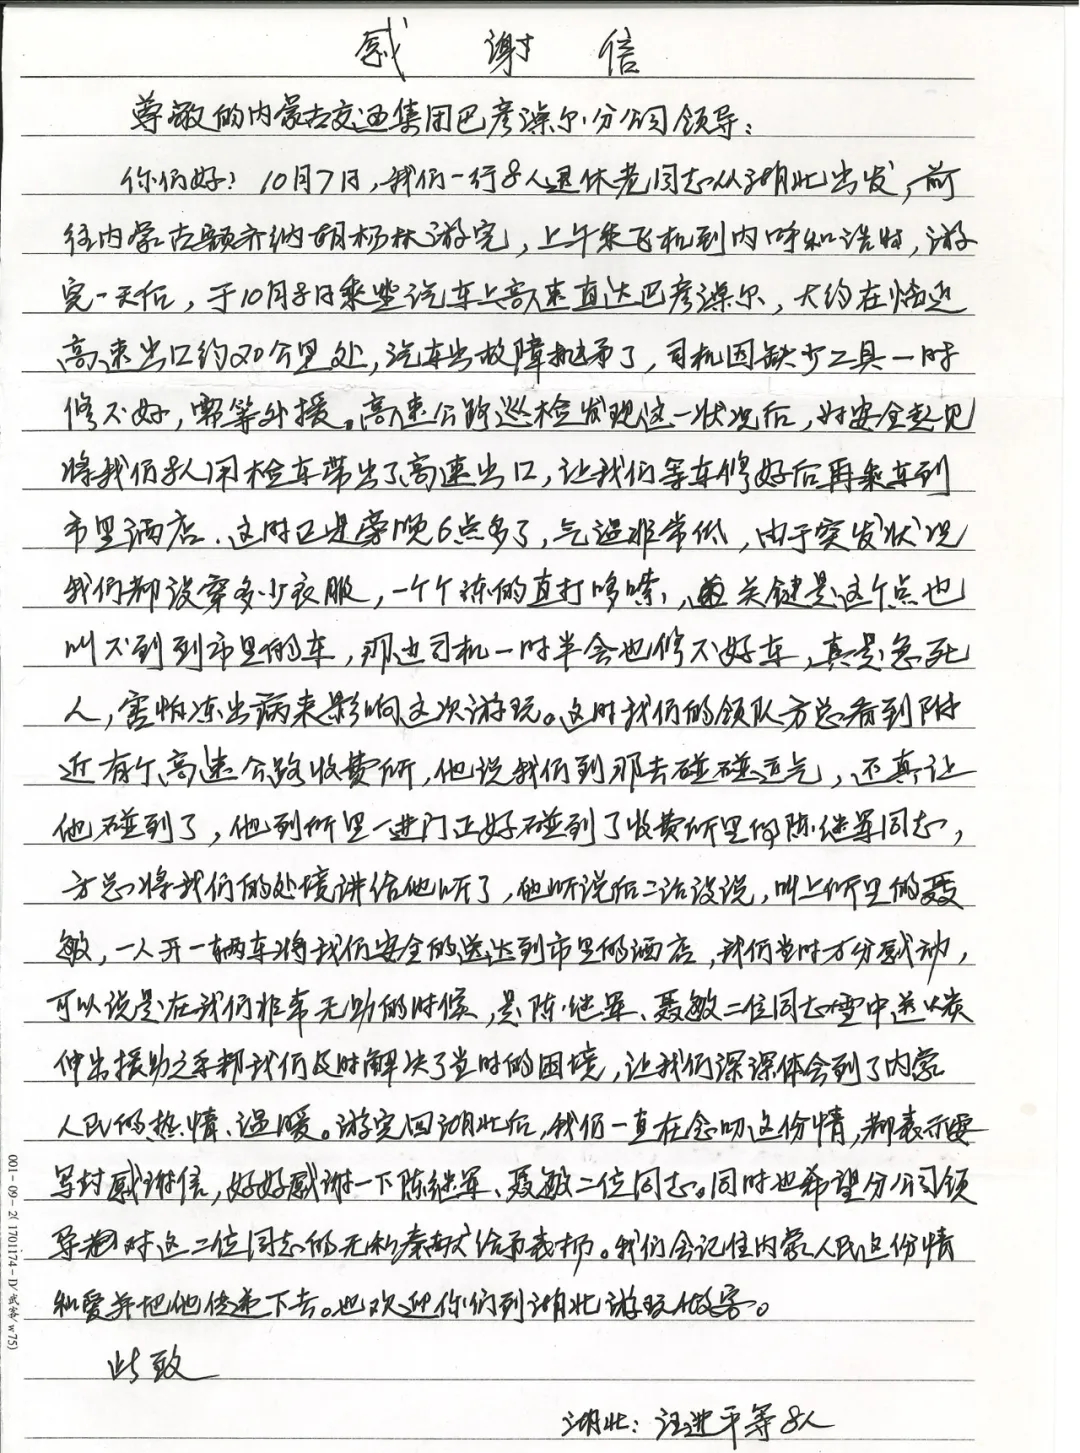 感谢信
尊敬的内蒙古交通集团巴彦淖尔分公司领导：
你们好！10月7日，我们一行8人退休老同志从湖北出发，前
往内蒙古额齐纳胡杨林游完，上午乘飞机到内呼和浩特，游
完一天后，于10月8日乘坐汽车上高速直达巴彦淖尔，大约在临近
高速出口约20公里处，汽车出故障抛矛了，司机因缺少工具一时
修不好，需等外援。高速公路巡检发现这一状况后，为安全起见
将我们8人用检车带出了高速出口，让我们等车修好后再乘车到
市里酒店．这时已是旁晚6点多了，气温非常低，由于突发状况
我们都没穿多少衣服，一个个冻的直打哆嗦，关键是这个点也
叫不到到市里的车，那边司机一时半会也修不好车，真是急死
人，害怕冻出病来影响这次游玩。这时我们的领队方总看到附
近有个高速公路收费所，他说我们到那去碰碰运气，还真让
他碰到了，他到所里一进门正好碰到了收费所里的陈继军同志，
方总将我们的处境讲给他听了，他听说后二话没说，叫上所里的聂
敏，一人开一辆车将我们安全的送达到市里的酒店，我们当时万分感动，
可以说是在我们非常无助的时候，是陈继军、聂敏二位同志雪中送炭
伸出援助之手帮我们及时解决了当时的困境，让我们深深体会到了内蒙
人民的热情、温暖。游完回湖北后，我们一直在念叨这份情，都表示要
写封感谢信，好好感谢一下陈继军、聂敏二位同志。同时也希望分公司领
导对这二位同志的无私奉献给予表扬。我们会记住内蒙人民这份情
和爱并把他传递下去。也欢迎你们到湖北游玩做客。
此致
湖北：汪进平等8人
001-09-2(1701174-D/武客/w75)